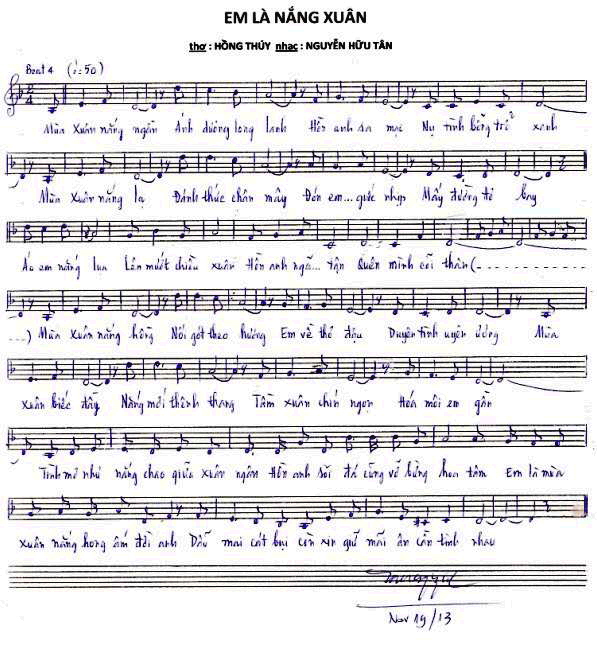 EM LÀ NẮNG XUÂN
thơ : HỒNG THÚY nhạc : NGUYỄN HỮU TÂN
Beat 4 (♩=50)
Mùa Xuân nắng ngần Ánh dương long lanh Hồn anh sa mạc Nụ tình bỗng trổ xanh
Mùa Xuân nắng lạ Đánh thức chân mây Đón em ... guốc nhịp Mấy đường tơ bay
Áo em nắng lụa Lên mướt chiều xuân Hồn anh ngã... tận Quên mình cõi thân (- - - - - - - - - -
- - - -) Mùa Xuân nắng hồng Nối gót theo hương Em về thơ đậu Duyên tình uyên ương Mùa
Xuân biếc đầy Nắng mới thênh thang Tầm xuân chín ngọn Hoá môi em gần
Tình mơ như nắng chao giữa xuân ngân Hồn anh sỏi đá cũng vỡ bừng hoa tâm Em là mùa
xuân nắng hong ấm đời anh Dẫu mai cát bụi còn xin giữ mãi ân cần tình nhau
Nov 19/13